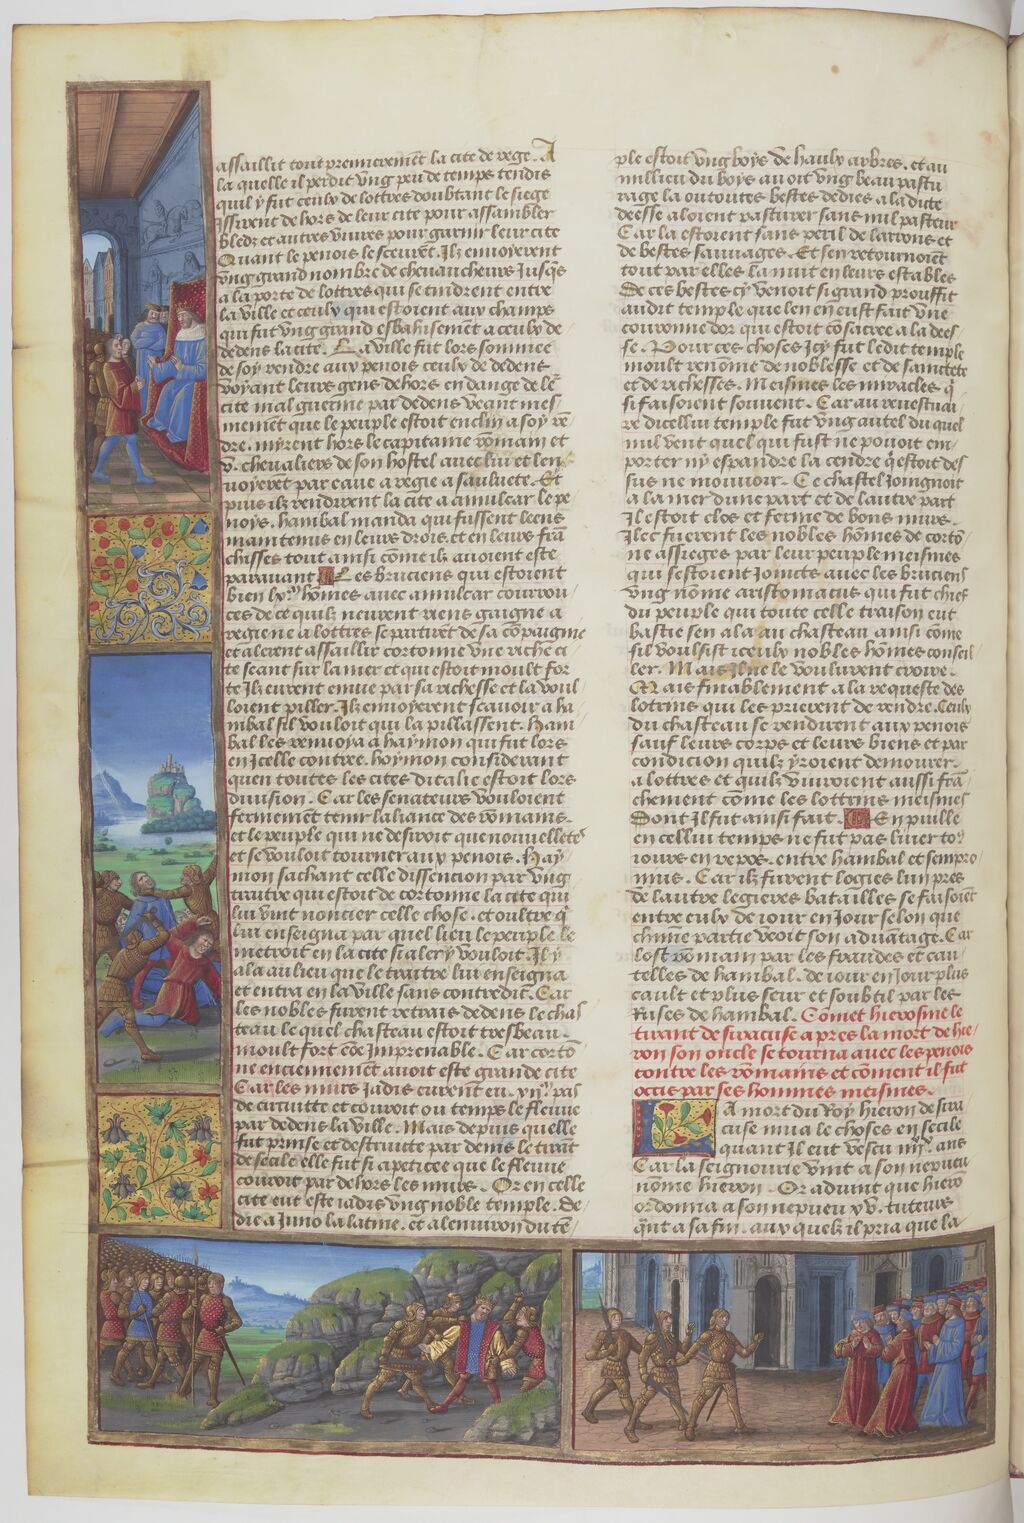 assaillit tout premierement la cite de rege. A
la quelle il perdit ung peu de temps tendis
quil y fut ceulx de lottres doubtant le siege
Issirent de hors de leur cite pour assambler
bledz et autres vivres pour garnir leur cite
Quant le penois le sceurent. Ilz envoyerent
ung grand nombre de chevaucheurs Jusqs
a la porte de lottres qui se tindrent entre
la ville et ceulx qui estoient aux champs
qui fut ung grand esbahisement a ceulx de
dedens la cite. La ville fut lors sommee
de soy rendre aux penois ceulx de dedens
voyant leurs gens de hors en dangé de le
cite mal guernie par dedens veant mes
mement que le peuple estoit enclin a soy re
dre. myrent hors le capitaine romain et
v. chevaliers de son hostel avec lui et len
voyeret par eaue a regie a sauluete. Et
puis ilz rendirent la cite a amulcar le pe
noys. hanibal manda qui fussent leens
maintenus en leurs drois. et en leurs fra
chisses tout ainsi come ilz avoient este
paravant Les bruciens qui estoient
bien hommes avec amulcar courrou
ces de ce quilz neurent riens gaigne a
regie ne a lottres se partiret de sa copaignie
et alerent assaillir cortonne une riche ci
te seant sur la mer et qui estoit moult for
te Ilz eurent envie par sa richesse et la voul
loient piller. Ilz envoyerent scavoir a ha
nibal sil vouloit qui la pillassent. Hani
bal les renvoya a haymon qui fut lors
en Icelle contree. haymon considerant
quen toutes les cites ditalie estoit lors
division. Car les senateurs vouloient
fermement tenir laliance des romains.
et le peuple qui ne desiroit que nouvelletes
et se vouloit tourner aux penois. Hay
mon sachant celle dissencion par ung
traitre qui estoit de cortonne la cite qui
lui vint noncier celle chose. et oultre q
lui enseigna par quel lieu le peuple le
metroit en la cite si aler y vouloit. Il y
ala au lieu que le traitre lui enseigna
et entra en la ville sans contredit. Car
les nobles furent retrais dedens le chas
teau le quel chasteau estoit tresbeau.
moult fort coe Imprenable. Car corto
ne enciennement avoit este grande cite
Car les murs Jadis eurent en. vii. pas
de circuitte et couroit ou temps le fleuve
par dedens la ville. Mais depuis quelle
fut prinse et destruitte par denis le tirant
de secile elle fut si apeticee que le fleuve
couroit par dehors les murs. Or en celle
cite eut este iadis ung noble temple. De
die a Juno la latine. et alenviron du te
ple estoit ung boys de haulx arbres. et au
millieu du boys avoit ung beau pastu
rage la ou toutes bestes dedies a la dite
deesse aloient pasturer sans nul pasteur
Car la estoient sans peril de larrons et
de bestes sauvages. Et sen retournoiet
tout par elles la nuit en leurs estables
De ces bestes cy venoit si grand prouffit
audit temple que len en eust fait une
couronne dor qui estoit cosacree a la dees
se. Pour ces choses Icy fut ledit temple
moult renome de noblesse et de sainctete
et de richesses. Meismes les miracles q
si faisoient souvent. Car au revestuai
re dicellui temple fut ung autel du quel
nul vent quel qui fust ne pouoit em
porter ny espandre la cendre q estoit des
sus ne mouvoir. Ce chastel Joingnoit
a la mer dune part et de lautre part
Il estoit clos et ferme de bons murs.
Ilec fuerent les nobles homes de corto
ne assieges par leur peuple meismes
qui sestoient Joincts avec les bruciens
ung nome aristomacus qui fut chief
du peuple qui toute celle traison eut
bastie sen ala au chasteau ainsi come
sil voulsist iceulx nobles homes conseil
ler. Mais Il ne le voulurent croire.
Mais finablement a la requeste des
lotrins qui les prierent de rendre. Ceulx
du chasteau se rendirent aux penois
sauf leurs corps et leurs biens et par
condicion quilz yroient demourer.
a lottres et quilz vivroient aussi fra
chement come les lottrins meismes
Dont Il fut ainsi fait. En puille
en cellui temps ne fut pas liver to
iours en repos. entre hanibal et sempro
nius. Car ilz furent logies lun pres
de lautre legieres batailles se faisoiet
entre eulx de iour en Jour selon que
chune partie veoit son advantage. Car
lost romain par les fraudes et cau
telles de hanibal. de iour en Jour plus
cault et plus seur et soubtil par les
Ruses de hanibal. Comet hierosme le
tirant de siracuse apres la mort de hie
ron son oncle se tourna avec les penois
contre les romains et coment il fut
occis par ses hommes meismes.
La mort du Roy hieron de sira
cuse mua le choses en secile
quant Il eut vescu ans
Car la seignourie vint a son nepveu
nome hieron. Or advint que hiero
ordonna a son nepveu xv. tuteurs
qnt a sa fin. aux quelz il pria que la